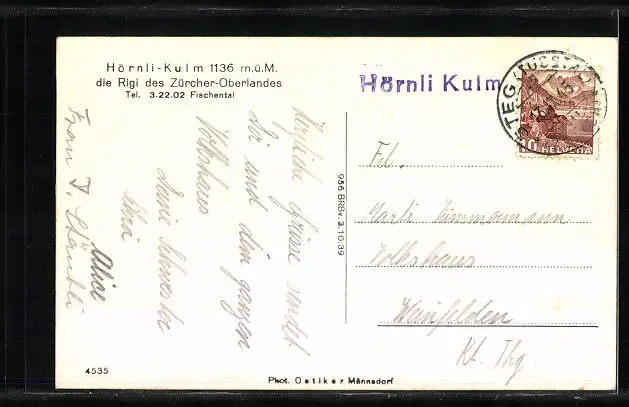 Hörnli-Kulm 1136 m.ü.M.
die Rigi des Zürcher-Oberlandes
Tel. 3.22.02 Fischental
Hörnli Kulm
STEG (TÖSSTAL)
10 HELVETIA
Herzliche Grüsse sendet
dir und dem ganzen
Volkshaus
Deine Schwester
Alice
Frau
Frl.
Marti Zimmermann
Volkshaus
Weinfelden
Kt. Thg
956 BRBv. 3.10.39
4535
Phot. Oetiker Männedorf